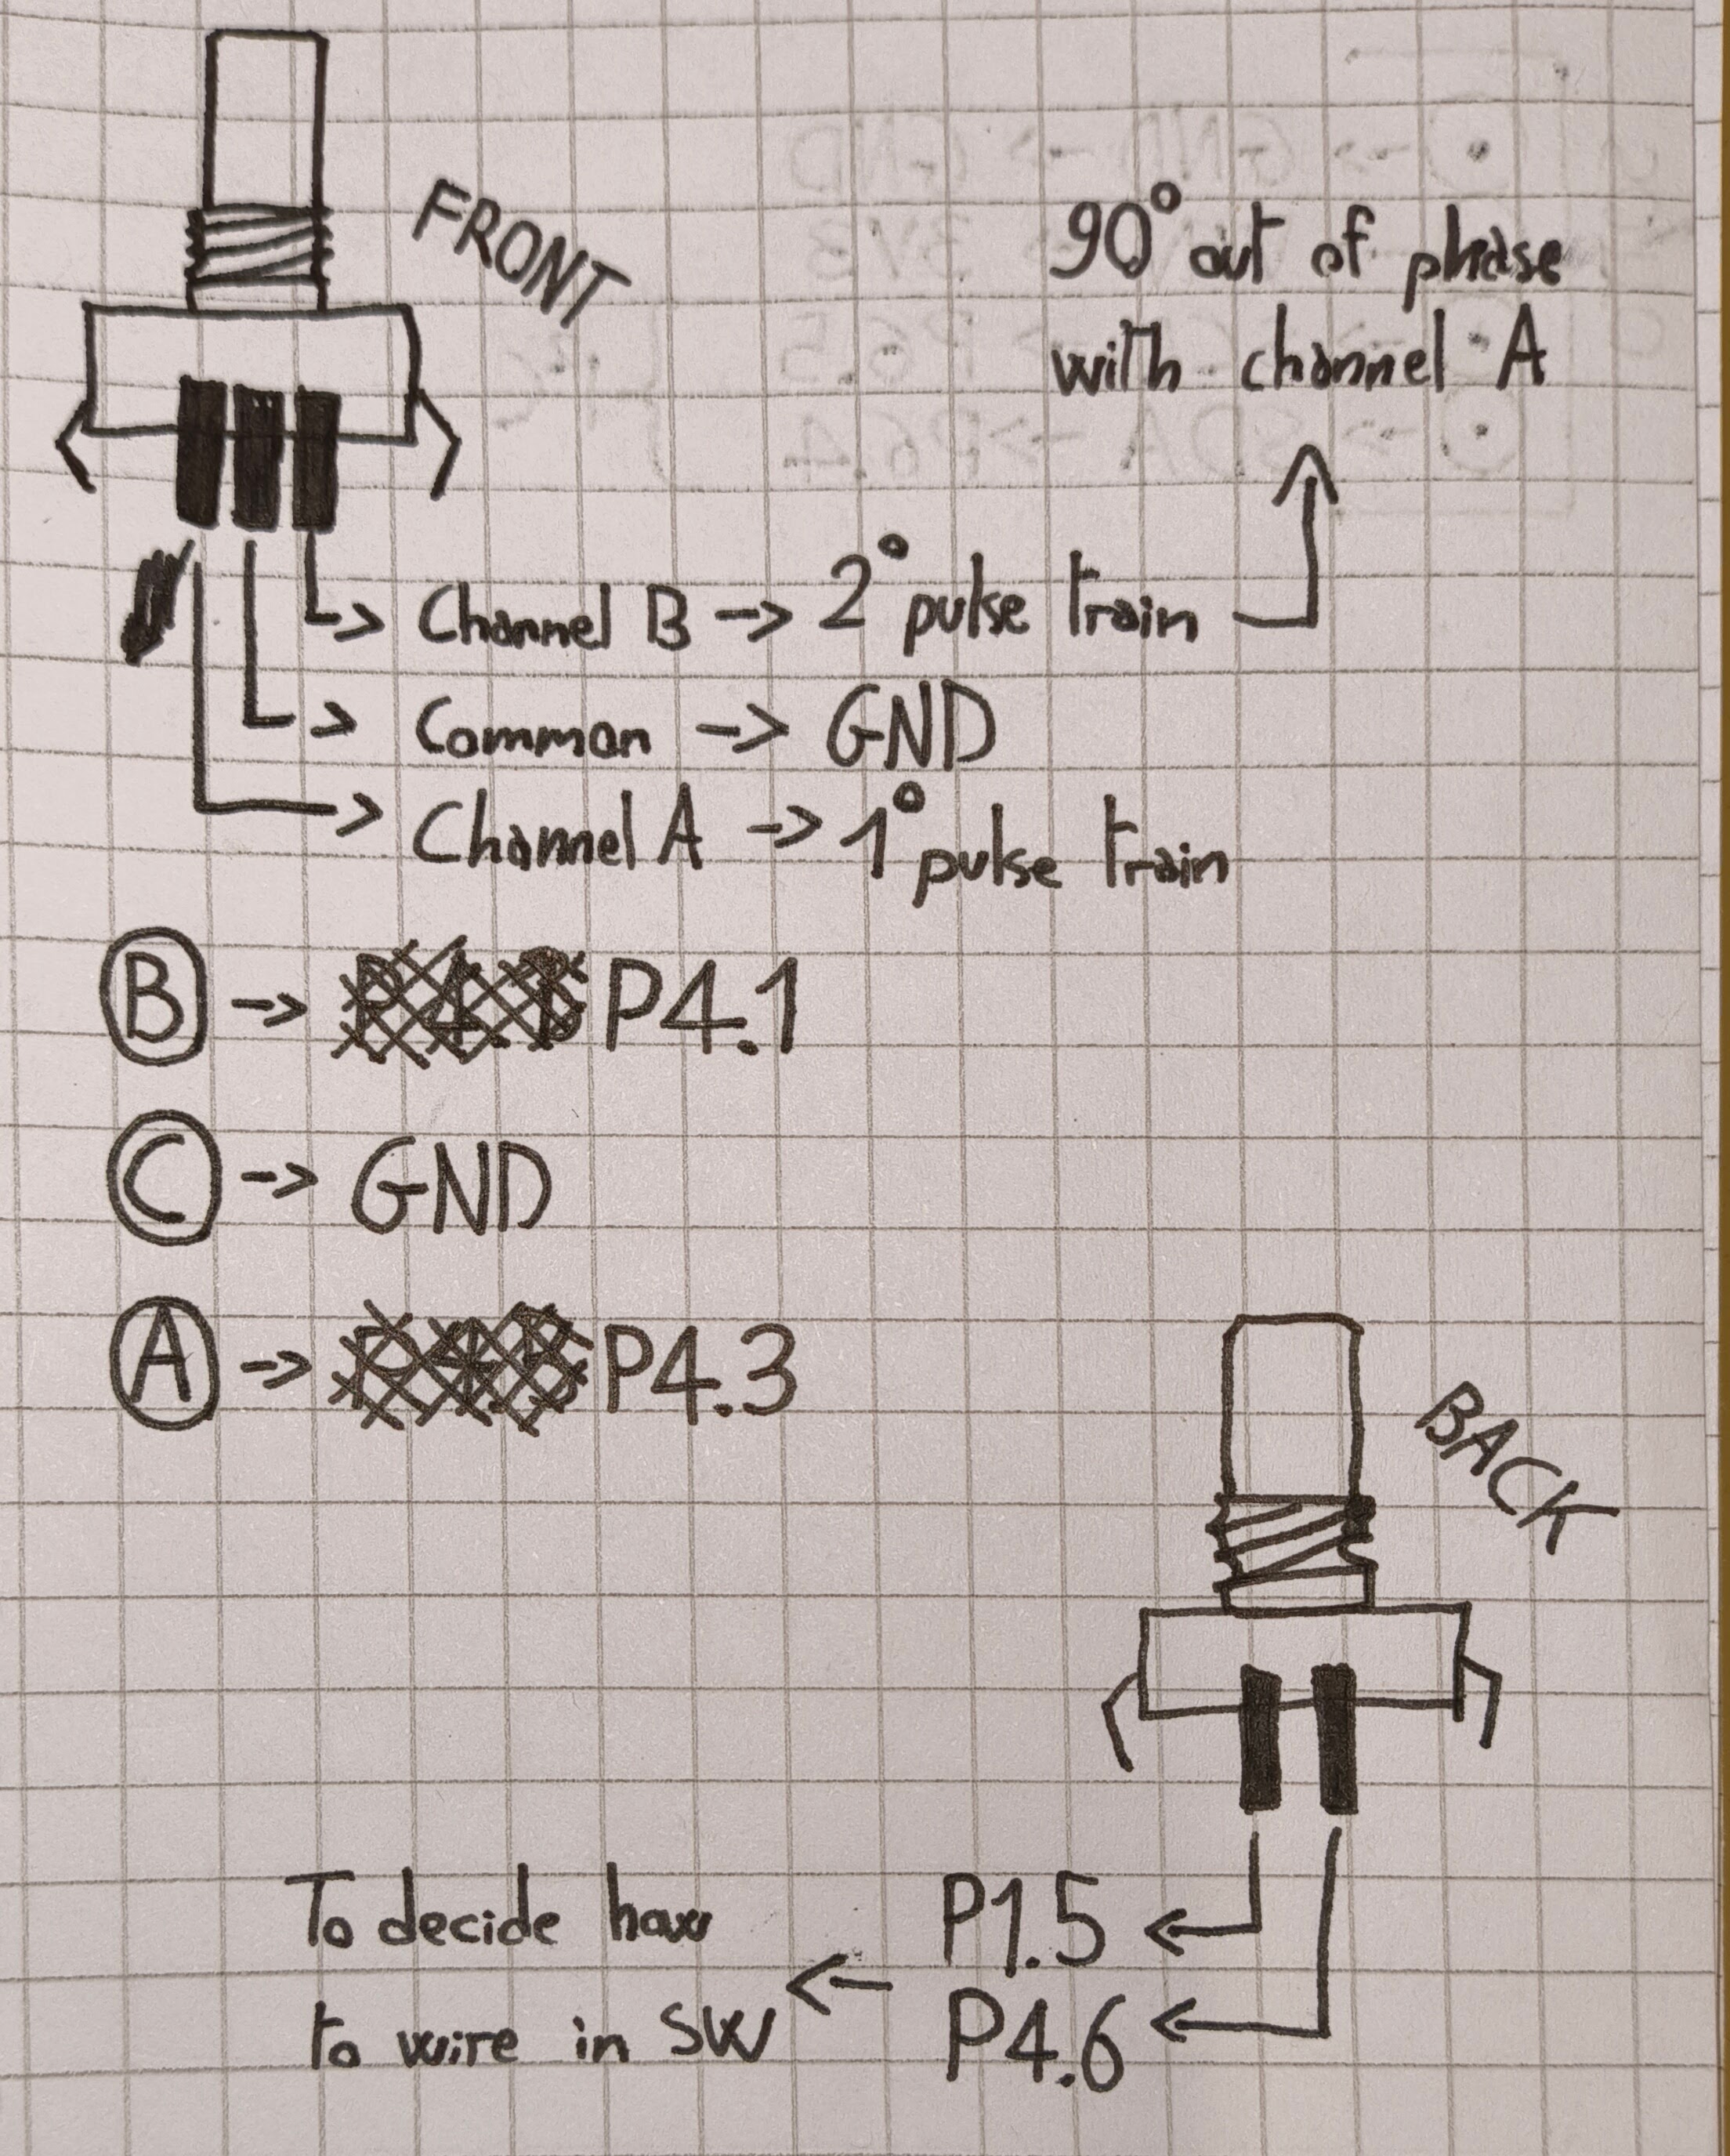 FRONT
90° out of phase
with channel A
Channel B -> 2° pulse train
Common -> GND
Channel A -> 1° pulse train
B -> P4.1
C -> GND
A -> P4.3
BACK
P1.5
P4.6
To decide how
to wire in SW